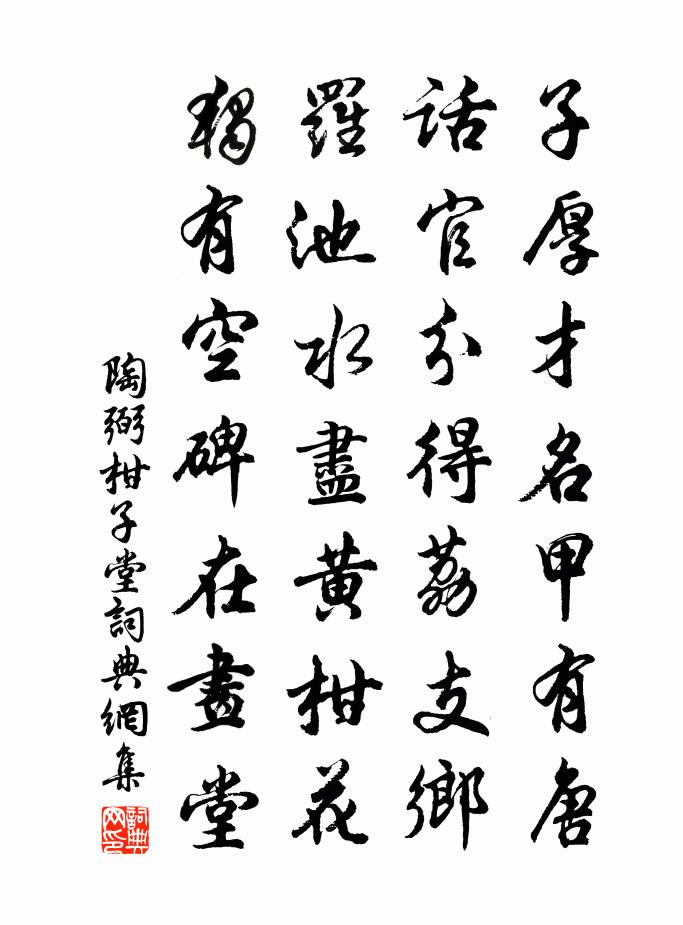 子厚才名甲有唐
話官分得荔支鄉
羅池水盡黄柑花
獨有空碑在畫堂
陶弼柑子堂詞典網集
詞典網印